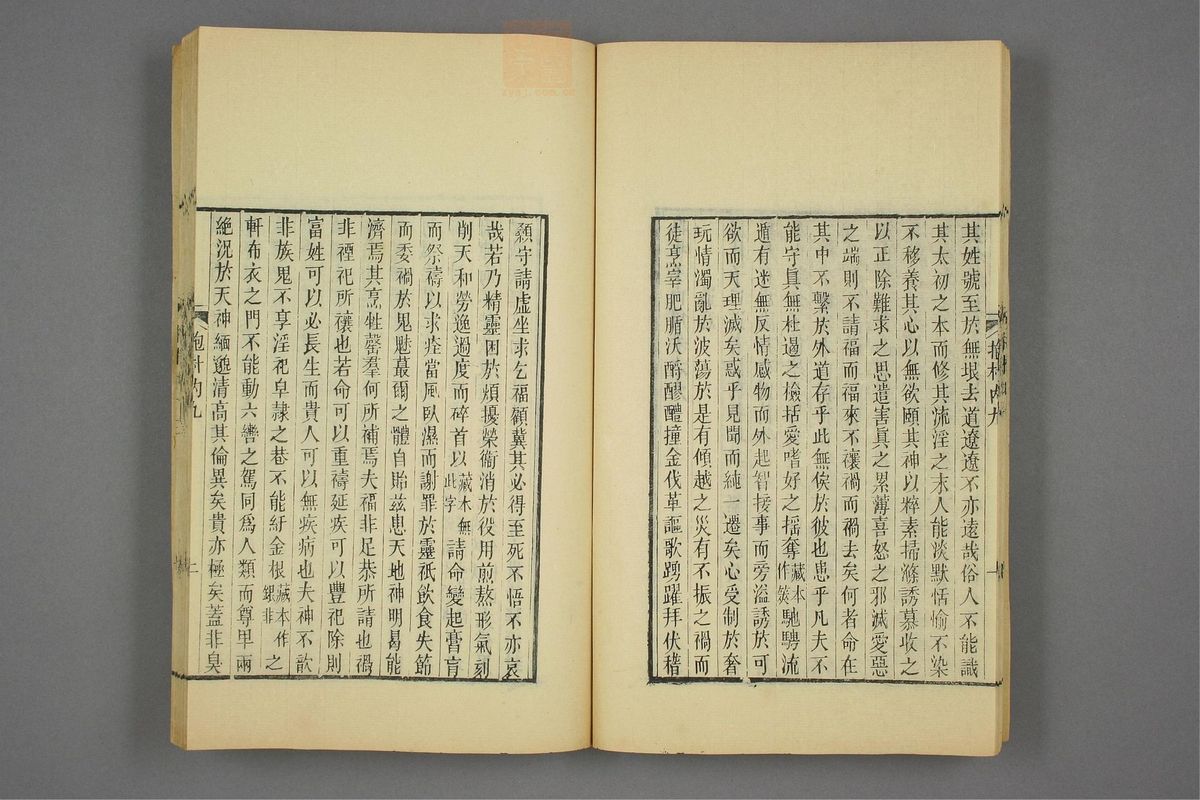 其姓號至於無垠去道遼遼不亦遠哉俗人不能識
其太初之本而修其流淫之末人能淡默恬愉不染
不移養其心以無欲頤其神以粹素掃滌誘慕收之
以正除難求之思遣害真之累薄喜怒之邪滅愛惡
之端則不請福而福來不禳禍而禍去矣何者命在
其中不繫於外道存乎此無俟於彼也患乎凡夫不
能守真無杜遏之檢括愛嗜好之搖奪藏本作煑馳騁流
遁有迷無反情感物而外起智接事而旁溢誘於可
欲而天理滅矣惑乎見聞而純一遷矣心受制於奢
玩情濁亂於波蕩於是有傾越之災有不振之禍而
徒烹宰肥腯沃酹醪醴撞金伐革謳歌踴躍拜伏稽
抱朴內九
顙守請虛坐求乞福願冀其必得至死不悟不亦哀
哉若乃精靈困於煩擾榮衞消於役用煎熬形氣刻
削天和勞逸過度而碎首以藏本無此字請命變起膏肓
而祭禱以求痊當風臥濕而謝罪於靈祇飲食失節
而委禍於鬼魅蕞爾之體自貽茲患天地神明曷能
濟焉其烹牲罄羣何所補焉夫福非足恭所請也禍
非禋祀所禳也若命可以重禱延疾可以豐祀除則
富姓可以必長生而貴人可以無疾病也夫神不歆
非族鬼不享淫祀皁隸之巷不能紆金根藏本作銀非之
軒布衣之門不能動六轡之駕同爲人類而尊卑兩
絕況於天神緬邈清高其倫異矣貴亦極矣蓋非臭
抱朴內九
二